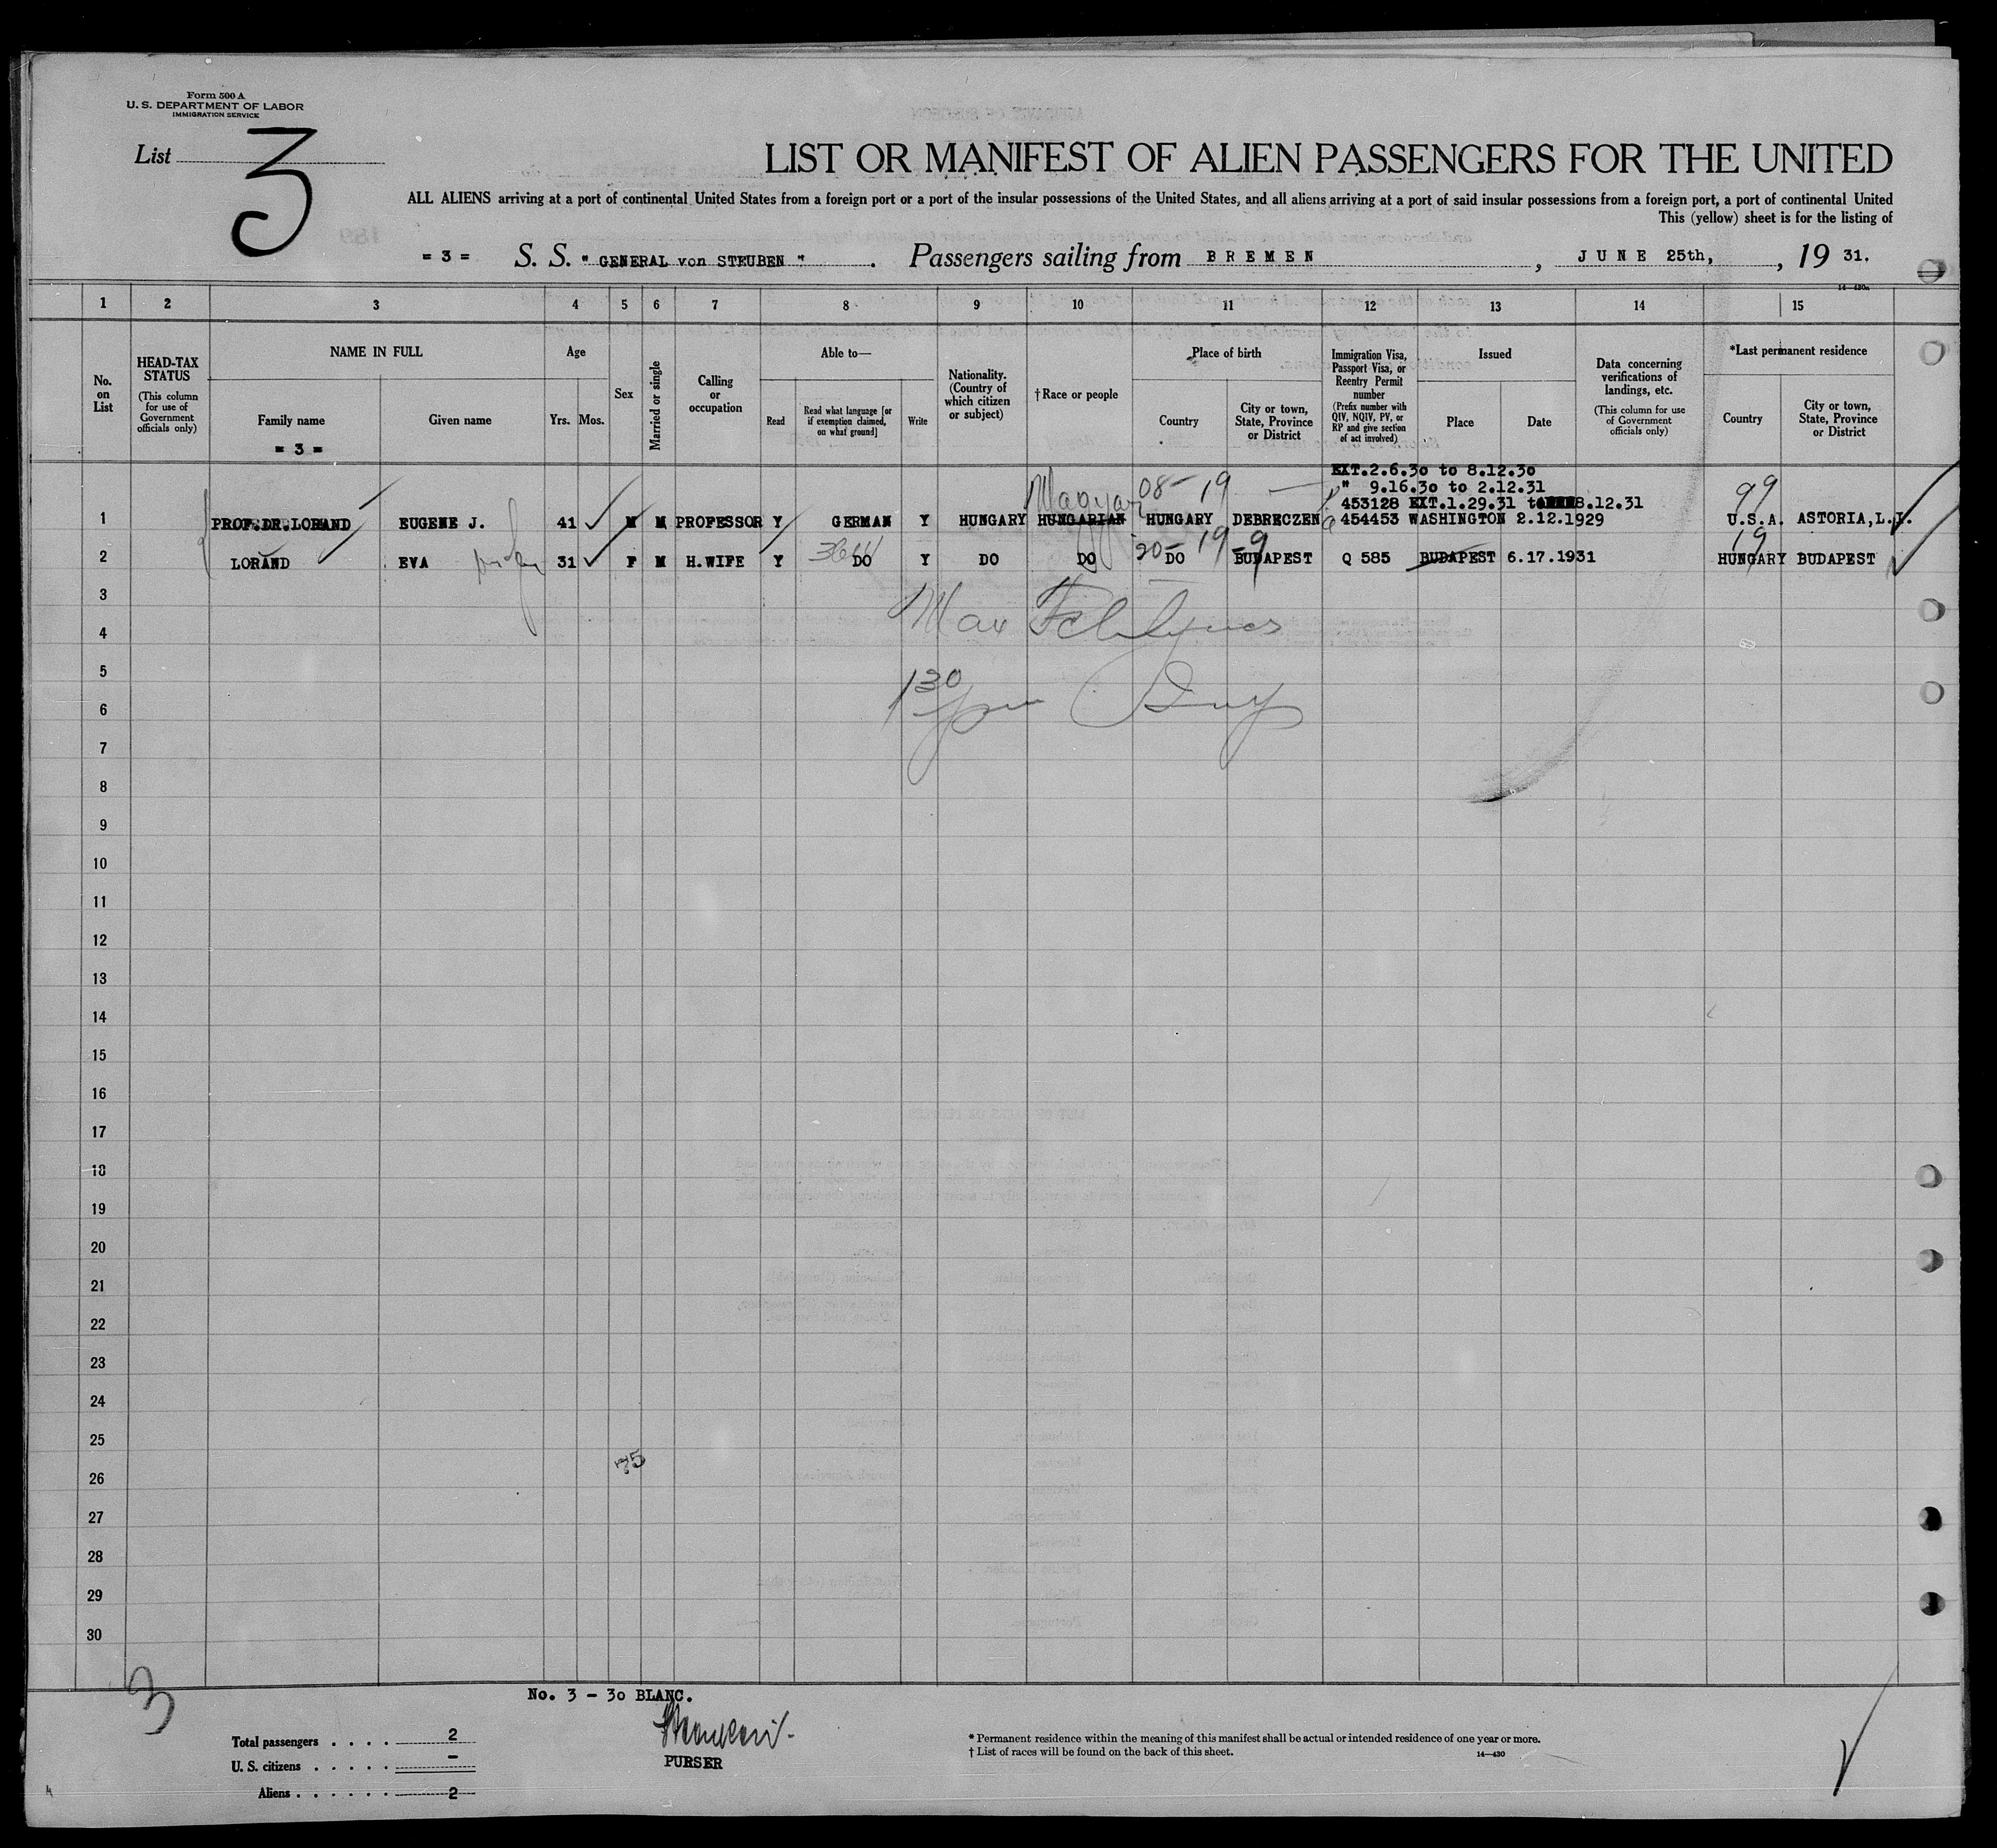 Form 500 A
U. S. DEPARTMENT OF LABOR
IMMIGRATION SERVICE
List 3
LIST OR MANIFEST OF ALIEN PASSENGERS FOR THE UNITED
ALL ALIENS arriving at a port of continental United States from a foreign port or a port of the insular possessions of the United States, and all aliens arriving at a port of said insular possessions from a foreign port, a port of continental United
This (yellow) sheet is for the listing of
= 3 = S. S. " GENERAL von STEUBEN " . Passengers sailing from BREMEN , JUNE 25th, , 19 31.
14—430a
1 2 3 4 5 6 7 8 9 10 11 12 13 14 15
No. on List
HEAD-TAX STATUS
(This column for use of Government officials only)
NAME IN FULL
Family name
= 3 =
Given name
Age
Yrs. Mos.
Sex
Married or single
Calling or occupation
Able to—
Read
Read what language [or if exemption claimed, on what ground]
Write
Nationality. (Country of which citizen or subject)
† Race or people
Place of birth
Country
City or town, State, Province or District
Immigration Visa, Passport Visa, or Reentry Permit number
(Prefix number with QIV, NQIV, PV, or RP and give section of act involved)
Issued
Place
Date
Data concerning verifications of landings, etc.
(This column for use of Government officials only)
*Last permanent residence
Country
City or town, State, Province or District
EXT.2.6.30 to 8.12.30
" 9.16.30 to 2.12.31
Magyar 08- 19 453128 EXT.1.29.31 to 8.12.31 99
1 PROF.DR.LORAND EUGENE J. 41 M M PROFESSOR Y GERMAN Y HUNGARY HUNGARIAN HUNGARY DEBRECZEN 454453 WASHINGTON 2.12.1929 U.S.A. ASTORIA,L.I.
20- 19 -9 19
2 LORAND EVA 31 F M H.WIFE Y DO Y DO DO DO BUDAPEST Q 585 BUDAPEST 6.17.1931 HUNGARY BUDAPEST
3
Max
4
5
130
6
7
8
9
10
11
12
13
14
15
16
17
18
19
20
21
22
23
24
25
26
27
28
29
30
3
No. 3 - 30 BLANC.
PURSER
Total passengers . . . . 2
U. S. citizens . . . . . -
Aliens . . . . . . 2
* Permanent residence within the meaning of this manifest shall be actual or intended residence of one year or more.
† List of races will be found on the back of this sheet.
14—430